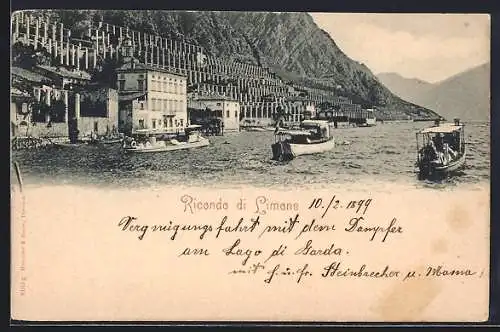 Ricordo di Limone 10./2. 1899
Vergnügungsfahrt mit dem Dampfer
am Lago di Garda.
mit H. u. Fr. Steinbrecher u. Mama